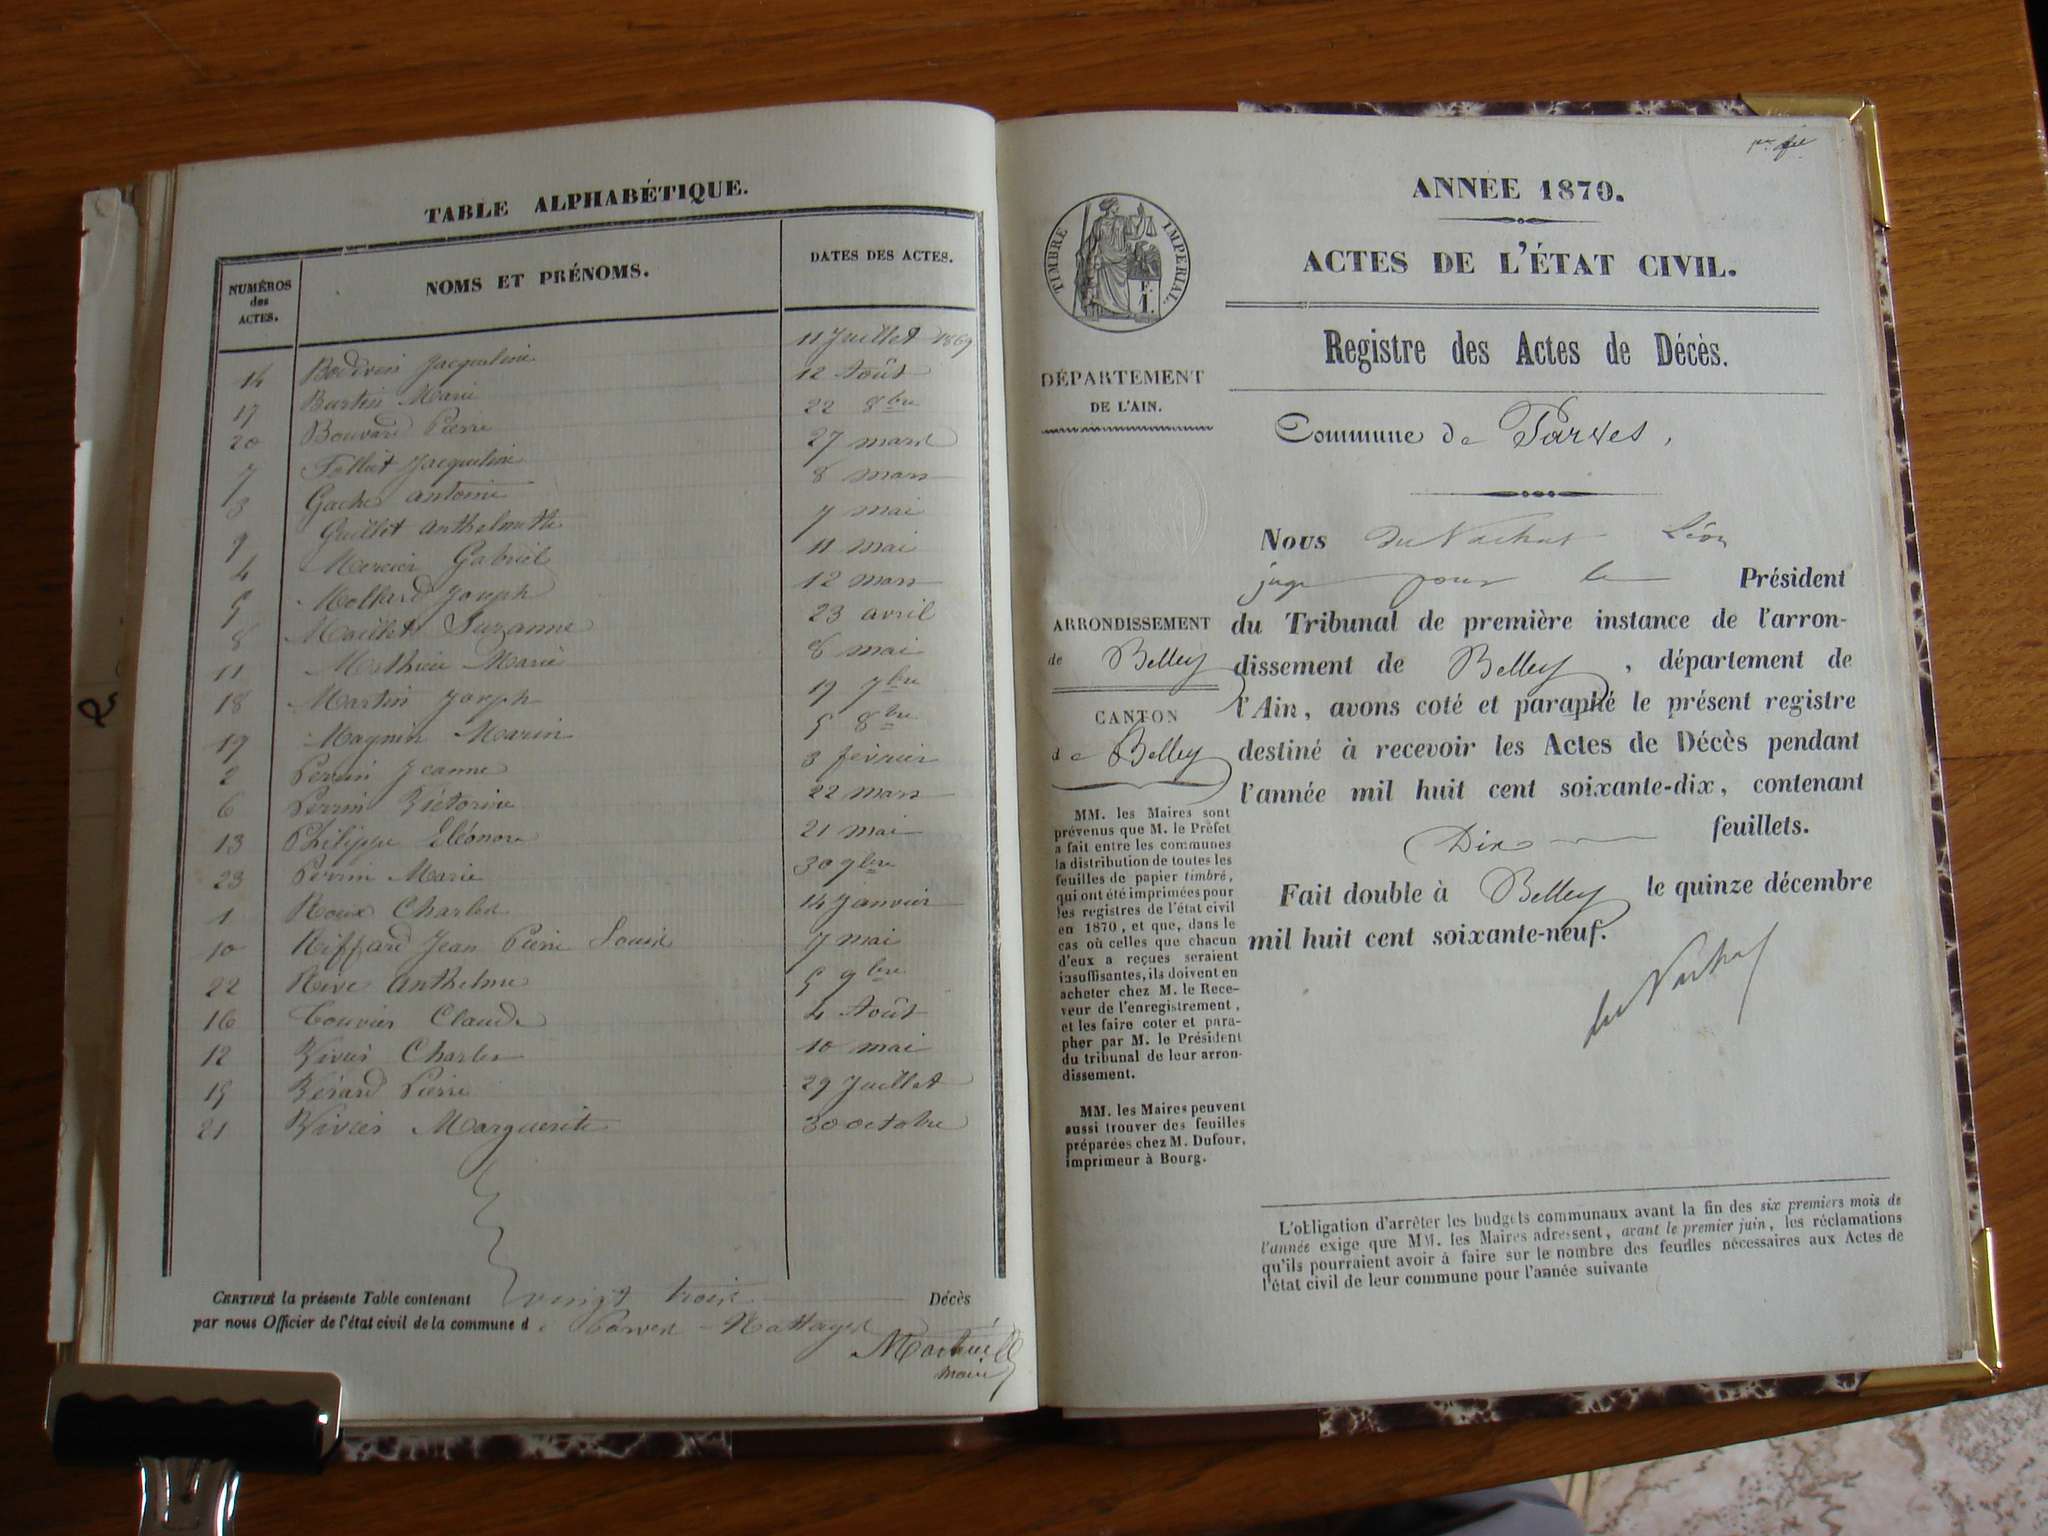 TABLE ALPHABÉTIQUE.
NUMÉROS des ACTES.
NOMS ET PRÉNOMS.
DATES DES ACTES.
14 Jacqueline 11 Juillet 1869
17 Burtin Marie 12 Août
20 Bouvard Pierre 22 8bre
7 Jacqueline 27 mars
3 Gache Antoine 8 mars
9 Guillot Anthelmette 7 mai
4 Mercier Gabriel 11 mai
5 Mollard Joseph 12 mars
8 Maillet Suzanne 23 avril
11 Mathieu Marie 8 mai
18 Martin Joseph 19 7bre
19 Magnin Marin 5 8bre
2 Perrin Jeanne 3 février
6 Perrin Victorine 22 mars
13 Philippe Eléonore 21 mai
23 Perrin Marie 30 9bre
1 Roux Charles 14 Janvier
10 Riffard Jean Pierre Louis 7 mai
22 Rive Anthelme 5 9bre
16 Touvier Claude 4 Août
12 Vivier Charles 10 mai
15 Vérard Pierre 29 Juillet
21 Vivier Marguerite 30 octobre
CERTIFIÉ la présente Table contenant vingt trois Décès
par nous Officier de l'état civil de la commune de Parves-Nattages
maire
ANNÉE 1870.
ACTES DE L'ÉTAT CIVIL.
TIMBRE IMPERIAL.
F. 1.
Registre des Actes de Décès.
DÉPARTEMENT
DE L'AIN.
Commune de Parves,
Nous Du Nachat Léon
juge pour le Président
du Tribunal de première instance de l'arron-
dissement de Belley, département de
l'Ain, avons coté et paraphé le présent registre
destiné à recevoir les Actes de Décès pendant
l'année mil huit cent soixante-dix, contenant
Dix feuillets.
Fait double à Belley le quinze décembre
mil huit cent soixante-neuf.
du Nachat
ARRONDISSEMENT
de Belley
CANTON
de Belley
MM. les Maires sont
prévenus que M. le Préfet
a fait entre les communes
la distribution de toutes les
feuilles de papier timbré,
qui ont été imprimées pour
les registres de l'état civil
en 1870, et que, dans le
cas où celles que chacun
d'eux a reçues seraient
insuffisantes, ils doivent en
acheter chez M. le Rece-
veur de l'enregistrement,
et les faire coter et para-
pher par M. le Président
du tribunal de leur arron-
dissement.
MM. les Maires peuvent
aussi trouver des feuilles
préparées chez M. Dufour,
imprimeur à Bourg.
L'obligation d'arrêter les budgets communaux avant la fin des six premiers mois de
l'année exige que MM. les Maires adressent, avant le premier juin, les réclamations
qu'ils pourraient avoir à faire sur le nombre des feuilles nécessaires aux Actes de
l'état civil de leur commune pour l'année suivante